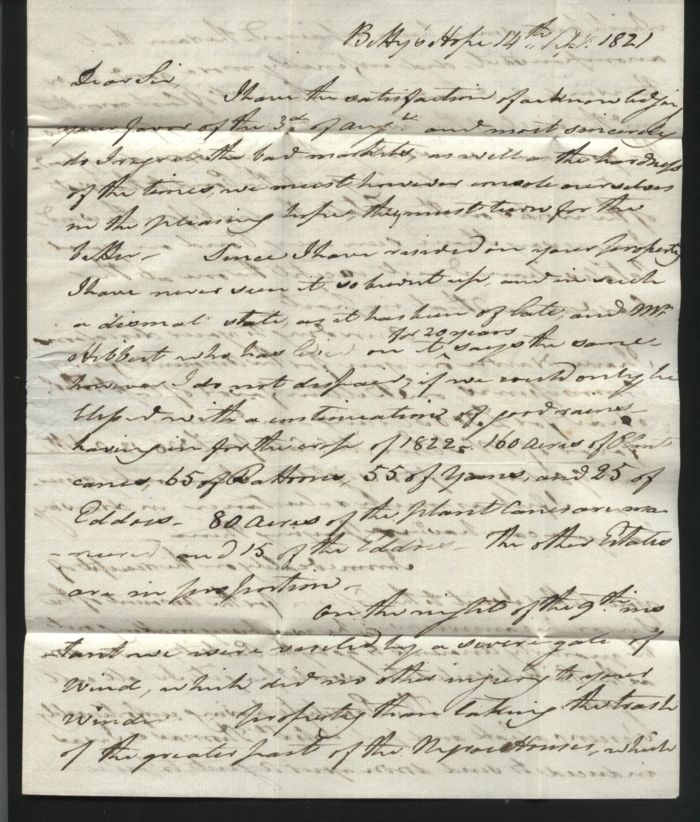 Betty's Hope 14th Sept. 1821
Dear Sir,
I have the satisfaction of acknowledging
your favor of the 3d. of Augt. and most sincerely
do I regret the bad markets, as well as the hardness
of the times, we must however console ourselves
in the pleasing hope, they must turn for the
better — Since I have resided on your property
I have never seen it so burnt up, and in such
a dismal state, as it has been of late, and Mr.
for 20 years
Hibbert who has lived on it, says the same
however I do not despair, if we could only be
blessed with a continuation of good rains —
having in for the crop of 1822. 160 acres of Plant
canes, 65 of Rattoons, 55 of Yams, and 25 of
Eddoes — 80 acres of the plant Canes are ma
-nured and 15 of the Eddoes — The other Estates
are in proportion —
On the night of the 9th. ins
tant we were visited by a severe gale of
Wind, which did no other injury to your
Windw property than taking the trash
of the greater part of the Negroe Houses, which